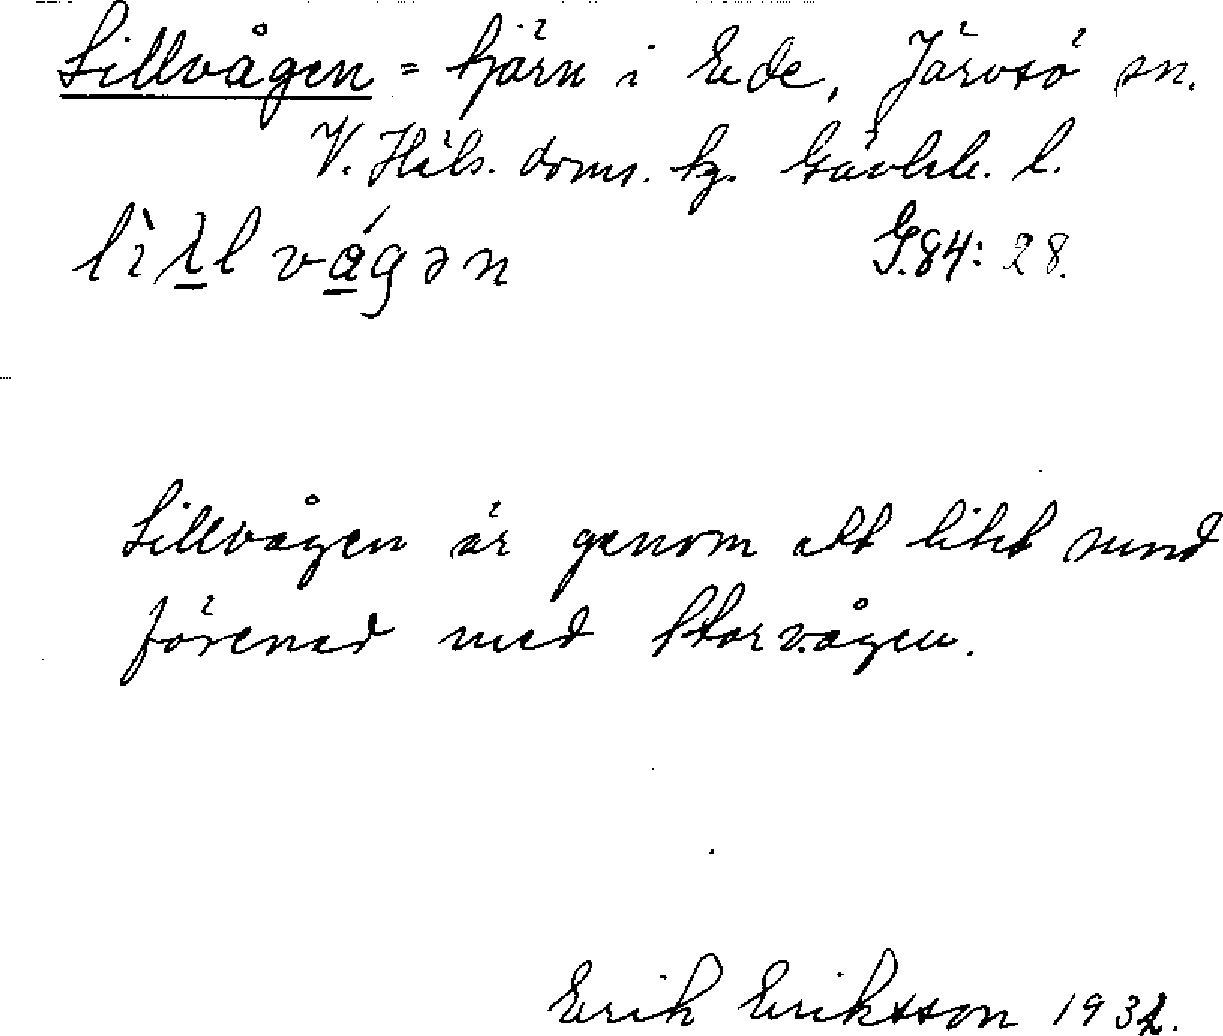 Lillvågen = tjärn i Ede, Järvsö sn.
V. Häls. doms. tg. Gävleb. l.
G.84: 28.
Lillvågen är genom ett litet sund
förenad med Storvågen.
Erik Eriksson 1932.